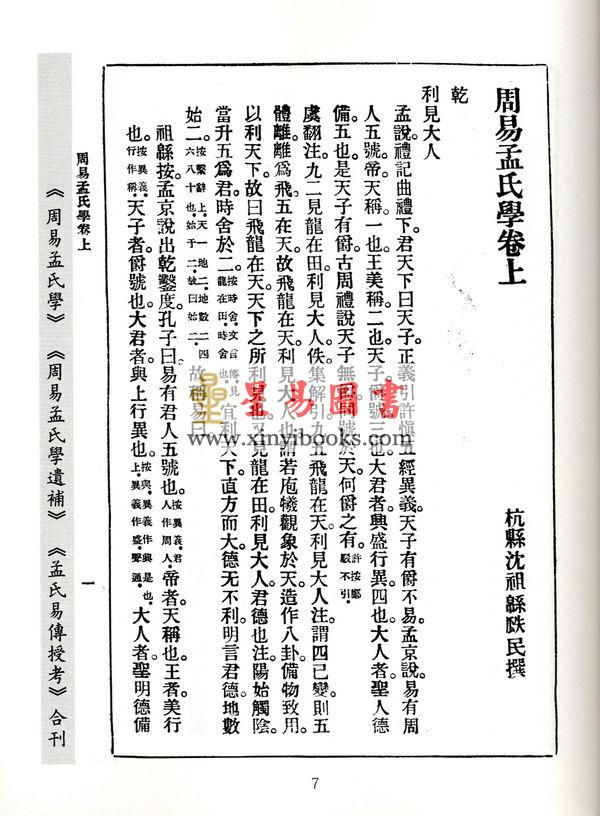 周易孟氏學卷上
杭縣沈祖緜瓞民撰
乾
利見大人
孟說禮記曲禮下。君天下曰天子。正義引許愼五經異義。天子有爵不易。孟京說。易有周
人五號。帝天稱一也。王美稱二也。天子爵號三也。大君者興盛行異四也。大人者聖人德
備五也。是天子有爵。古周禮說天子無爵。同號於天。何爵之有。許按鄭駁不引。
虞翻注九二見龍在田利見大人佚集解引。九五飛龍在天利見大人注。謂四已變。則五
體離。離爲飛。五在天。故飛龍在天。利見大人也。謂若庖犧觀象於天。造作八卦。備物致用。
以利天下。故曰飛龍在天。天下之所利見也。又見龍在田。利見大人。君德也注。陽始觸陰。
當升五爲君。時舍於二。按時舍。文言傳見龍在田。時舍也。宜利天下。直方而大。德无不利。明言君德。地數
始二。按繫辭上。天一地二。地數二四六八十也。始于二。故曰始二。故稱易曰。
祖緜按。孟京說出乾鑿度。孔子曰。易有君人五號也。按異義。君人作周人。帝者。天稱也。王者。美行
也。按異義。行作稱。天子者。爵號也。大君者。與上行異也。按與。異義作興。是也。上。異義作盛。聲通。大人者。聖明德備
周易孟氏學卷上
一
《周易孟氏學》《周易孟氏學遺補》《孟氏易傳授考》合刊
星易圖書
www.xinyibooks.com
7